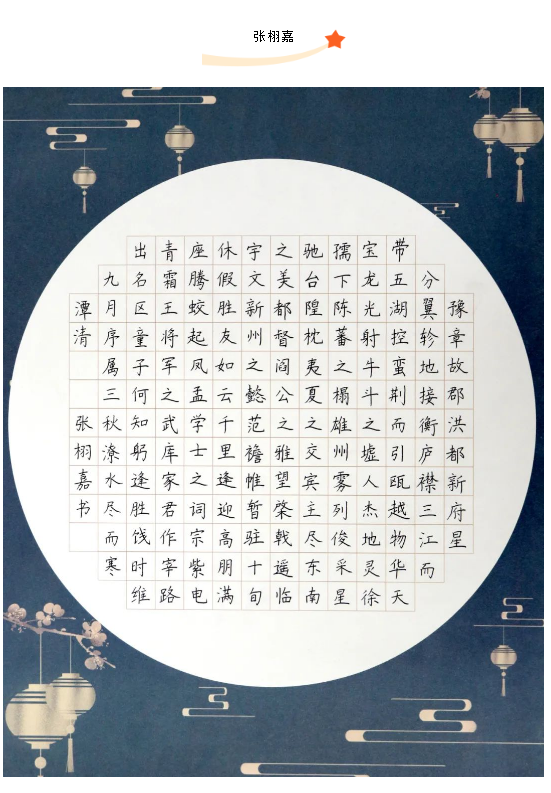 张栩嘉
豫章故郡洪都新府星
分翼轸地接衡庐襟三江而
带五湖控蛮荆而引瓯越物华天
宝龙光射牛斗之墟人杰地灵徐
孺下陈蕃之榻雄州雾列俊采星
驰台隍枕夷夏之交宾主尽东南
之美都督阎公之雅望棨戟遥临
宇文新州之懿范襜帷暂驻十旬
休假胜友如云千里逢迎高朋满
座腾蛟起凤孟学士之词宗紫电
青霜王将军之武库家君作宰路
出名区童子何知躬逢胜饯时维
九月序属三秋潦水尽而寒
潭清 张栩嘉书